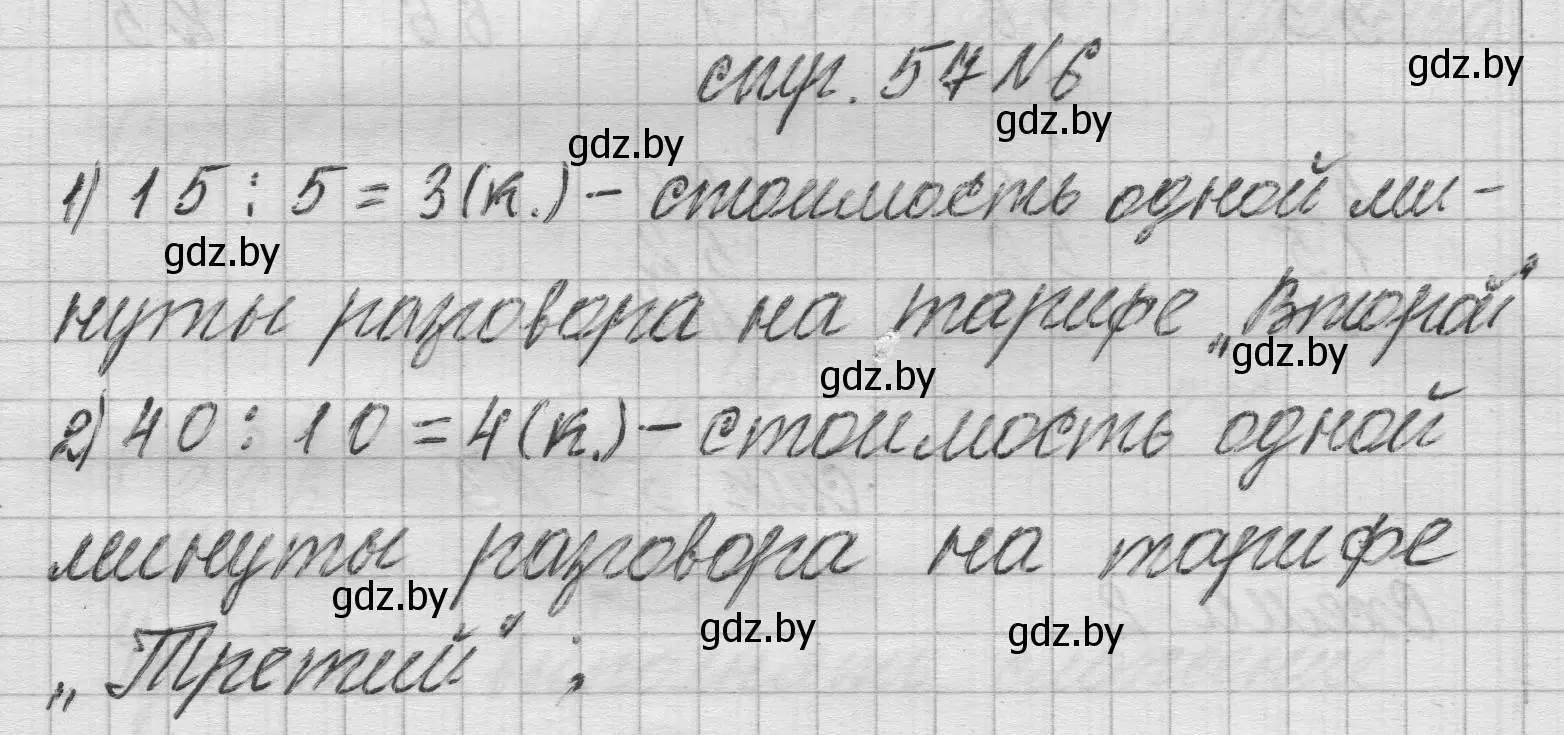 стр. 57 N 6
gdz.by
gdz.by
gdz.by
1) 15 : 5 = 3 (к.) – стоимость одной ми-
gdz.by
нуты разговора на тарифе „Второй“
gdz.by
gdz.by
2) 40 : 10 = 4 (к.) – стоимость одной
минуты разговора на тарифе
gdz.by
gdz.by
gdz.by
„Третий“ ;